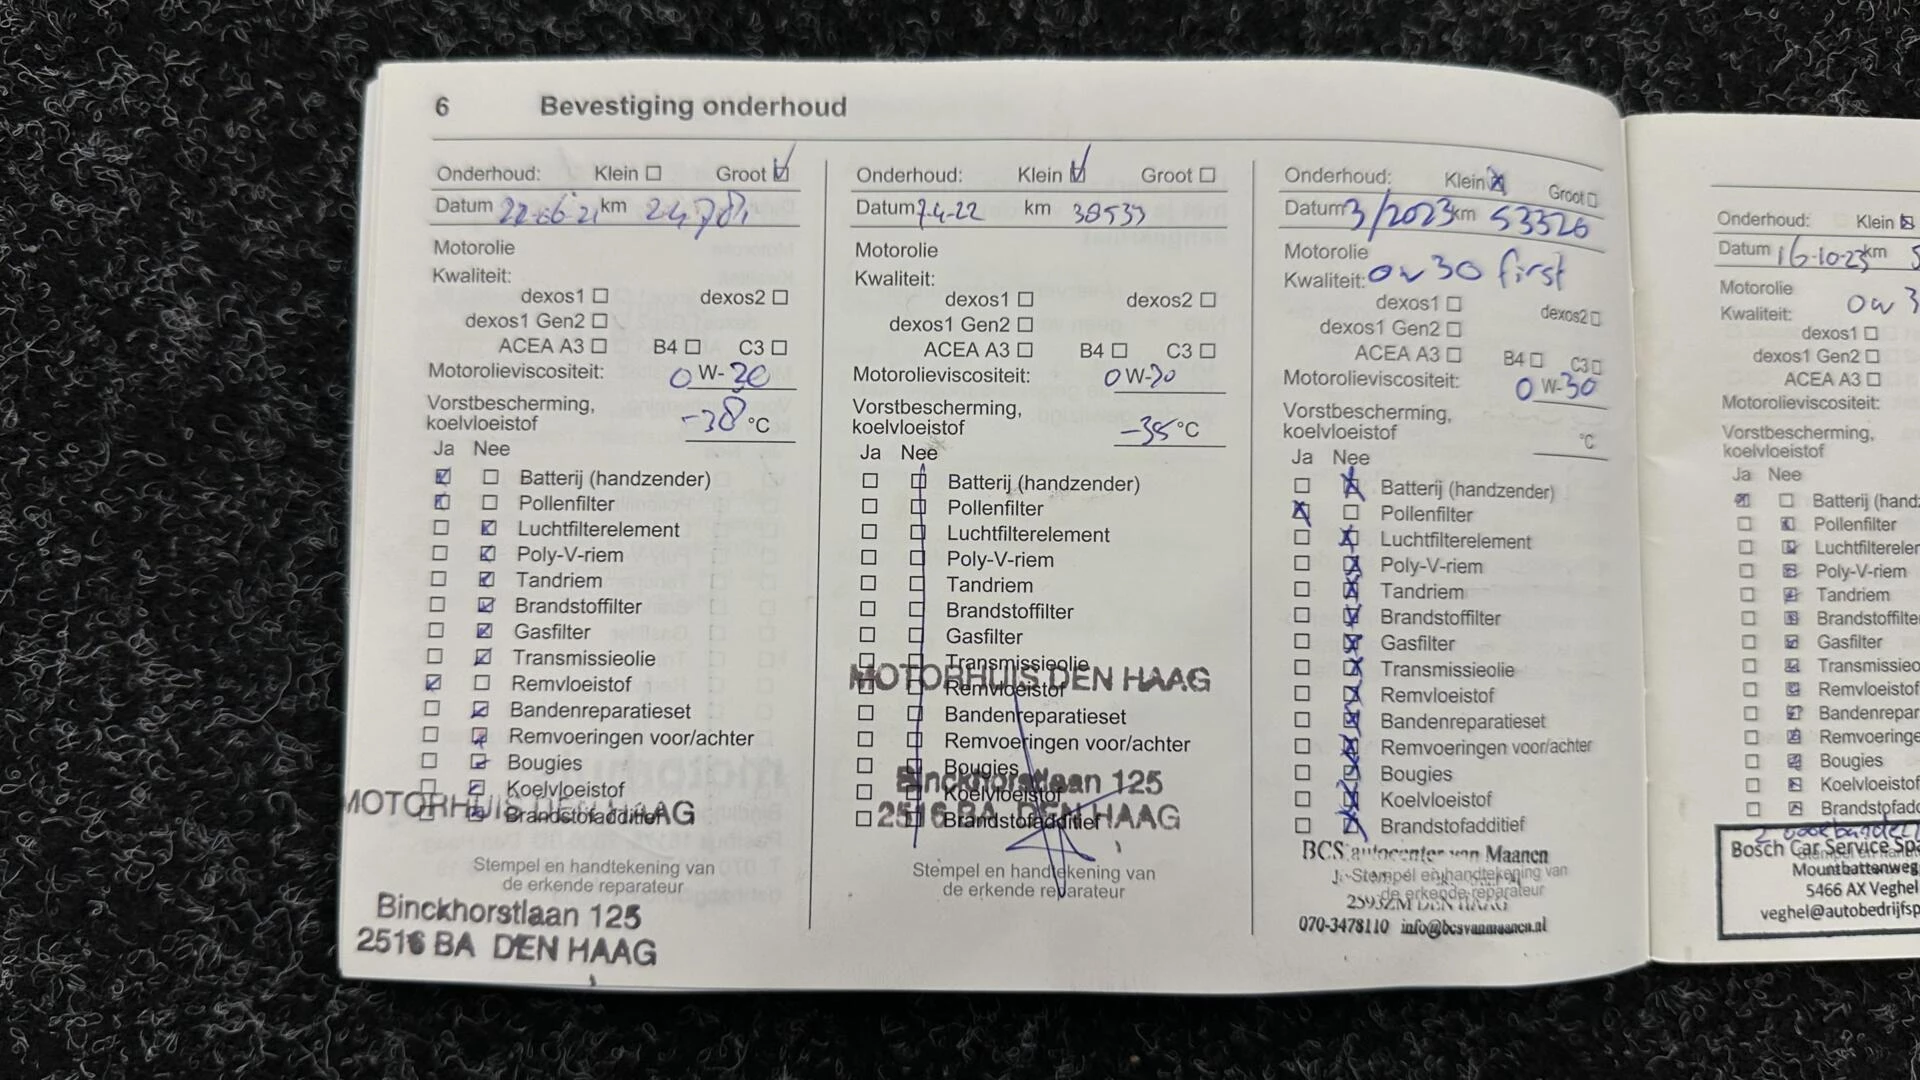 6 Bevestiging onderhoud
Onderhoud: Klein Groot
Datum 22-06-21 km 24781
Motorolie
Kwaliteit:
dexos1 dexos2
dexos1 Gen2
ACEA A3 B4 C3
Motorolieviscositeit: 0 W-20
Vorstbescherming,
koelvloeistof -38 °C
Ja Nee
Batterij (handzender)
Pollenfilter
Luchtfilterelement
Poly-V-riem
Tandriem
Brandstoffilter
Gasfilter
Transmissieolie
Remvloeistof
Bandenreparatieset
Remvoeringen voor/achter
Bougies
Koelvloeistof
MOTORHUIS DEN HAAG
Brandstofadditief
Stempel en handtekening van
de erkende reparateur
Binckhorstlaan 125
2516 BA DEN HAAG
Onderhoud: Klein Groot
Datum 7-4-22 km 38533
Motorolie
Kwaliteit:
dexos1 dexos2
dexos1 Gen2
ACEA A3 B4 C3
Motorolieviscositeit: 0 W-30
Vorstbescherming,
koelvloeistof -35 °C
Ja Nee
Batterij (handzender)
Pollenfilter
Luchtfilterelement
Poly-V-riem
Tandriem
Brandstoffilter
Gasfilter
Transmissieolie
MOTORHUIS DEN HAAG
Remvloeistof
Bandenreparatieset
Remvoeringen voor/achter
Bougies
Binckhorstlaan 125
Koelvloeistof
2516 BA DEN HAAG
Brandstofadditief
Stempel en handtekening van
de erkende reparateur
Onderhoud: Klein Groot
Datum 3/2023 km 53326
Motorolie
Kwaliteit: 0w30 first
dexos1 dexos2
dexos1 Gen2
ACEA A3 B4 C3
Motorolieviscositeit: 0 W-30
Vorstbescherming,
koelvloeistof °C
Ja Nee
Batterij (handzender)
Pollenfilter
Luchtfilterelement
Poly-V-riem
Tandriem
Brandstoffilter
Gasfilter
Transmissieolie
Remvloeistof
Bandenreparatieset
Remvoeringen voor/achter
Bougies
Koelvloeistof
Brandstofadditief
BCS autocenter van Maanen
Stempel en handtekening van
de erkende reparateur
2593ZM DEN HAAG
070-3478110 info@bcsvanmaanen.nl
Onderhoud: Klein
Datum 16-10-23 km 5
Motorolie
Kwaliteit: 0w3
dexos1
dexos1 Gen2
ACEA A3
Motorolieviscositeit:
Vorstbescherming,
koelvloeistof
Ja Nee
Batterij (handz
Pollenfilter
Luchtfilterelem
Poly-V-riem
Tandriem
Brandstoffilte
Gasfilter
Transmissieo
Remvloeistof
Bandenrepar
Remvoeringe
Bougies
Koelvloeistof
Brandstofadd
Bosch Car Service Spa
Mountbattenweg
5466 AX Veghel
veghel@autobedrijfsp